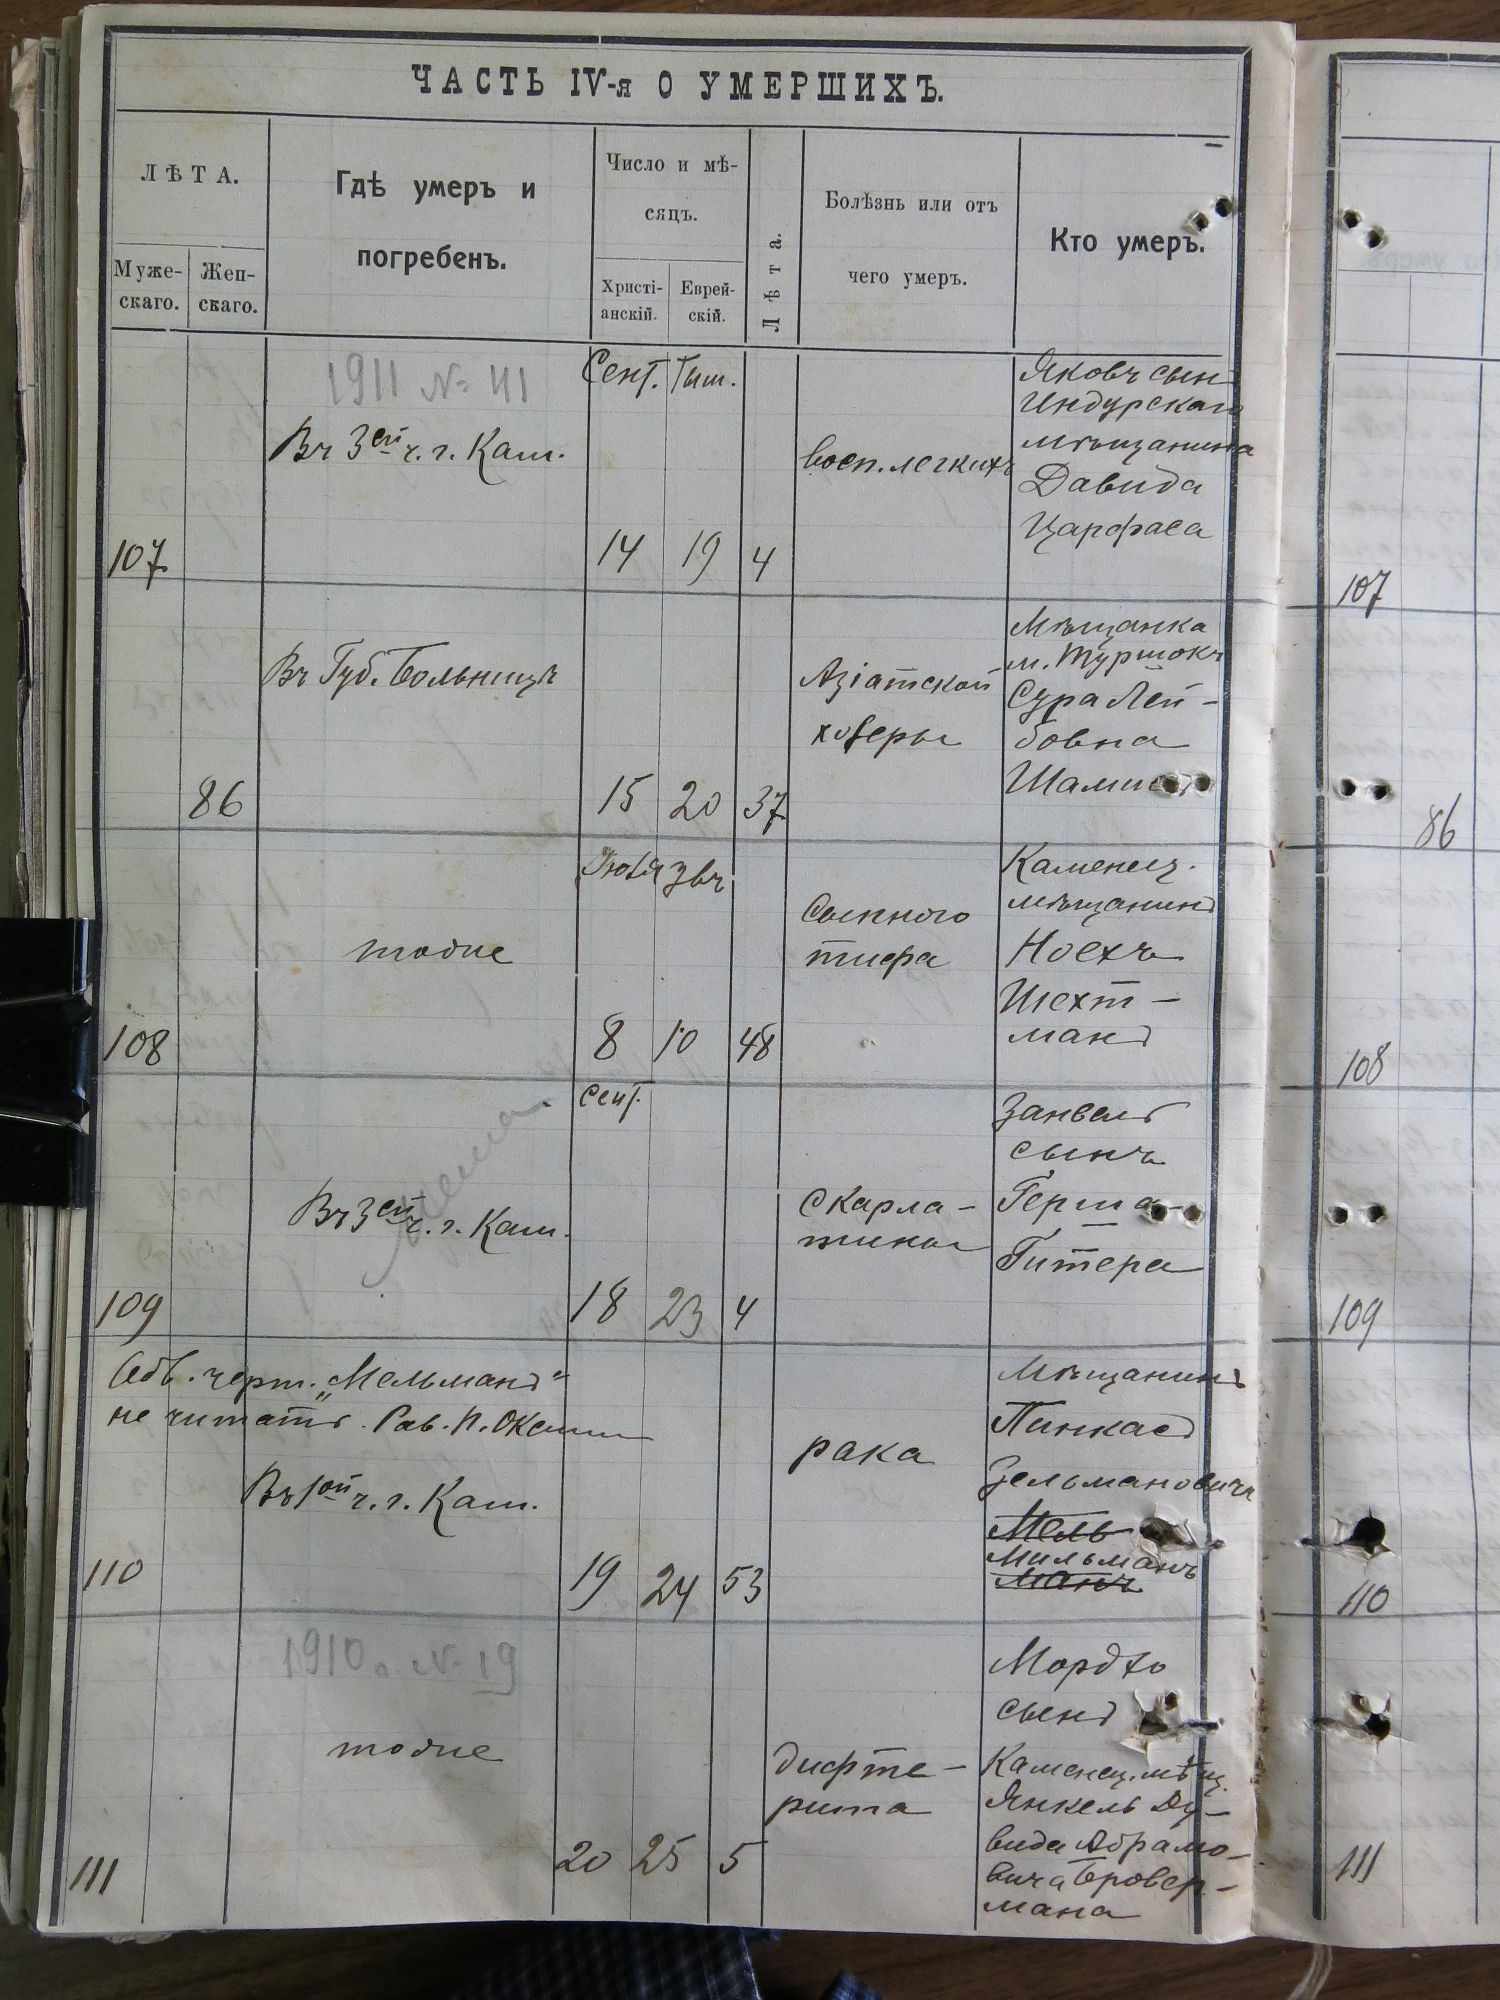 ЧАСТЬ IV-я О УМЕРШИХЪ.
ЛѢТА.
Муже-
скаго.
Жен-
скаго.
Гдѣ умеръ и
погребенъ.
Число и мѣ-
сяцъ.
Христі-
анскій.
Еврей-
скій.
Лѣта.
Болѣзнь или отъ
чего умеръ.
Кто умеръ.
1911 № 41
Сент. Тиш.
Въ 3ей ч. г. Кам.
107
14 19 4
восп. легкихъ
Яковъ сынъ
Индурскаго
мѣщанина
Давида
Царфаса
107
Въ Губ. Больницѣ
86
15 20 37
Азіатской
холеры
Мѣщанка
м. Жур
Сура Лей-
бовна
86
Іюля
тоже
108
8 10 48
Сыпного
тифа
Каменец.
мѣщанинъ
Ноехъ
Шехт-
манъ
108
Сент.
Въ 3ей ч. г. Кам.
109
18 23 4
Скарла-
тины
Занвель
сынъ
Герша
Гитера
109
черт. „Мельманъ"
не читать. Рав.
Въ 1ой ч. г. Кам.
110
19 24 53
рака
Мѣщанинъ
Пинкасъ
Зельмановичъ
Мель
Мильманъ
манъ
110
1910 г. № 19
тоже
111
20 25 5
дифте-
рита
Мордко
сынъ
Каменец. мѣщ.
Янкель Ду-
вида Абрамо-
вича Бровер-
мана
111